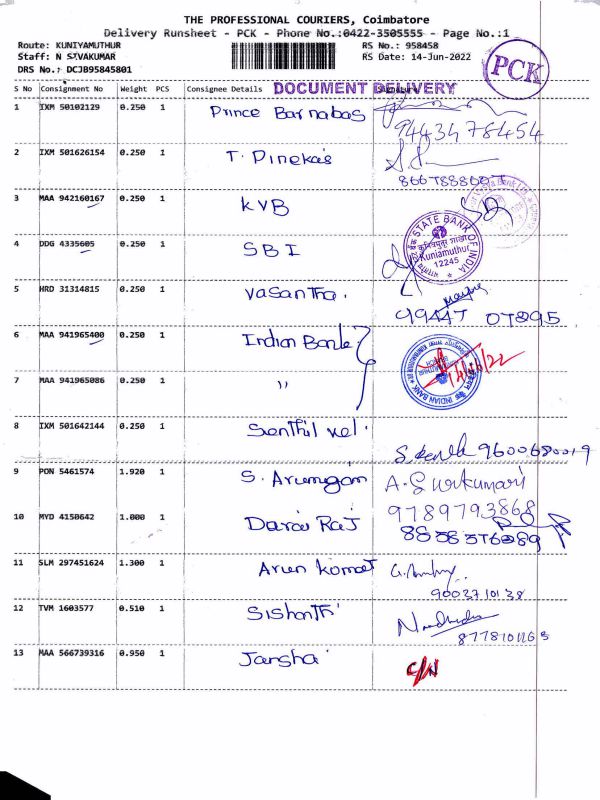 THE PROFESSIONAL COURIERS, Coimbatore
Delivery Runsheet - PCK - Phone No.:0422-3505555 - Page No.:1
Route: KUNIYAMUTHUR RS No.: 958458
Staff: N SIVAKUMAR RS Date: 14-Jun-2022
DRS No.: DCJB95845801
PCK
S No Consignment No Weight PCS Consignee Details Signature
DOCUMENT DELIVERY
1 IXM 50102129 0.250 1 Prince Barnabas
9443478454
2 IXM 501626154 0.250 1 T. Dinekas
3 MAA 942160167 0.250 1 KVB
4 DDG 4335605 0.250 1 SBI
STATE BANK OF INDIA
Kuniamuthur
12245
5 HRD 31314815 0.250 1 Vasantha.
99447 07895
6 MAA 941965400 0.250 1 Indian Bank
INDIAN BANK
7 MAA 941965086 0.250 1 "
8 IXM 501642144 0.250 1 Senthil vel.
9600680019
9 PON 5461574 1.920 1 S. Arumugam
9789793868
10 MYD 4150642 1.000 1 Darai Raj
11 SLM 297451624 1.300 1 Arun Komat
9003710138
12 TVM 1603577 0.510 1 Sishanthi
13 MAA 566739316 0.950 1 Jansha
C/N